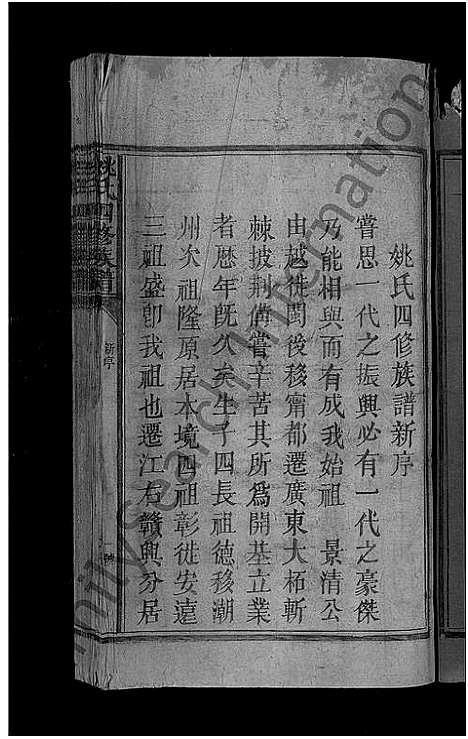 姚氏四修族譜新序
嘗思一代之振興必有一代之豪傑
乃能相與而有成我始祖 景清公
由越徙閩後移甯都遷廣東大柘斬
棘披荆備嘗辛苦其所爲開基立業
者歷年旣久矣生子四長祖德移潮
州次祖隆原居本境四祖彰徙安遠
三祖盛卽我祖也遷江右贛興分居
姚氏四修族譜
新序
FamilySearch International